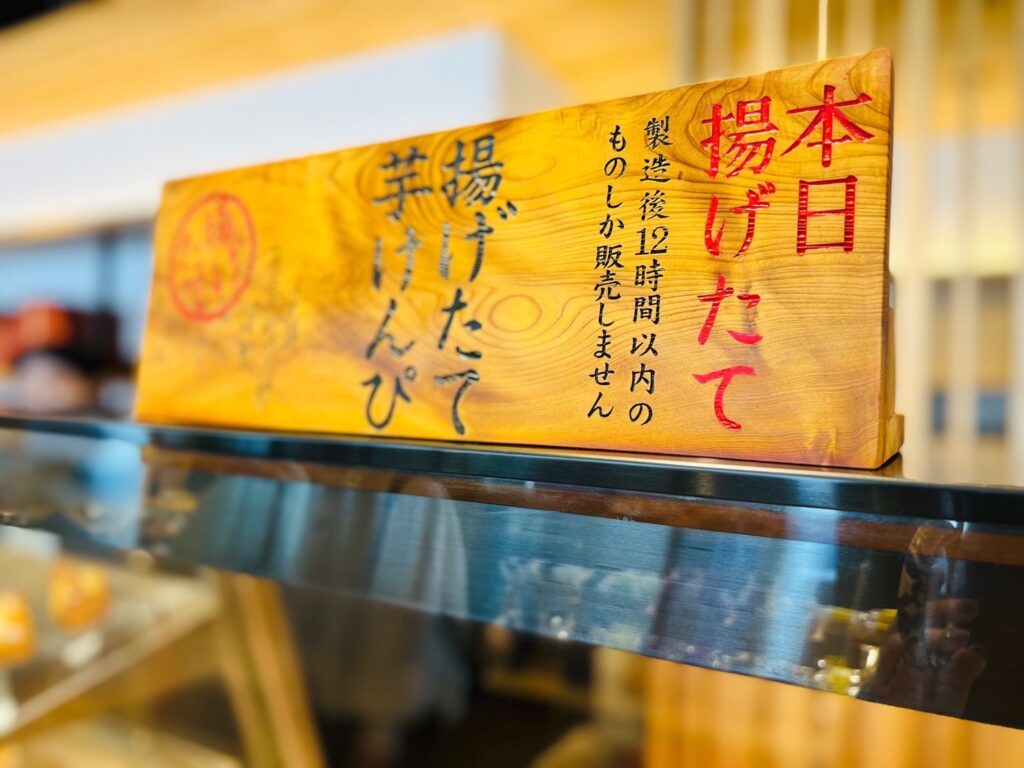 本日
揚げたて
製造後12時間以内の
ものしか販売しません
揚げたて
芋けんぴ